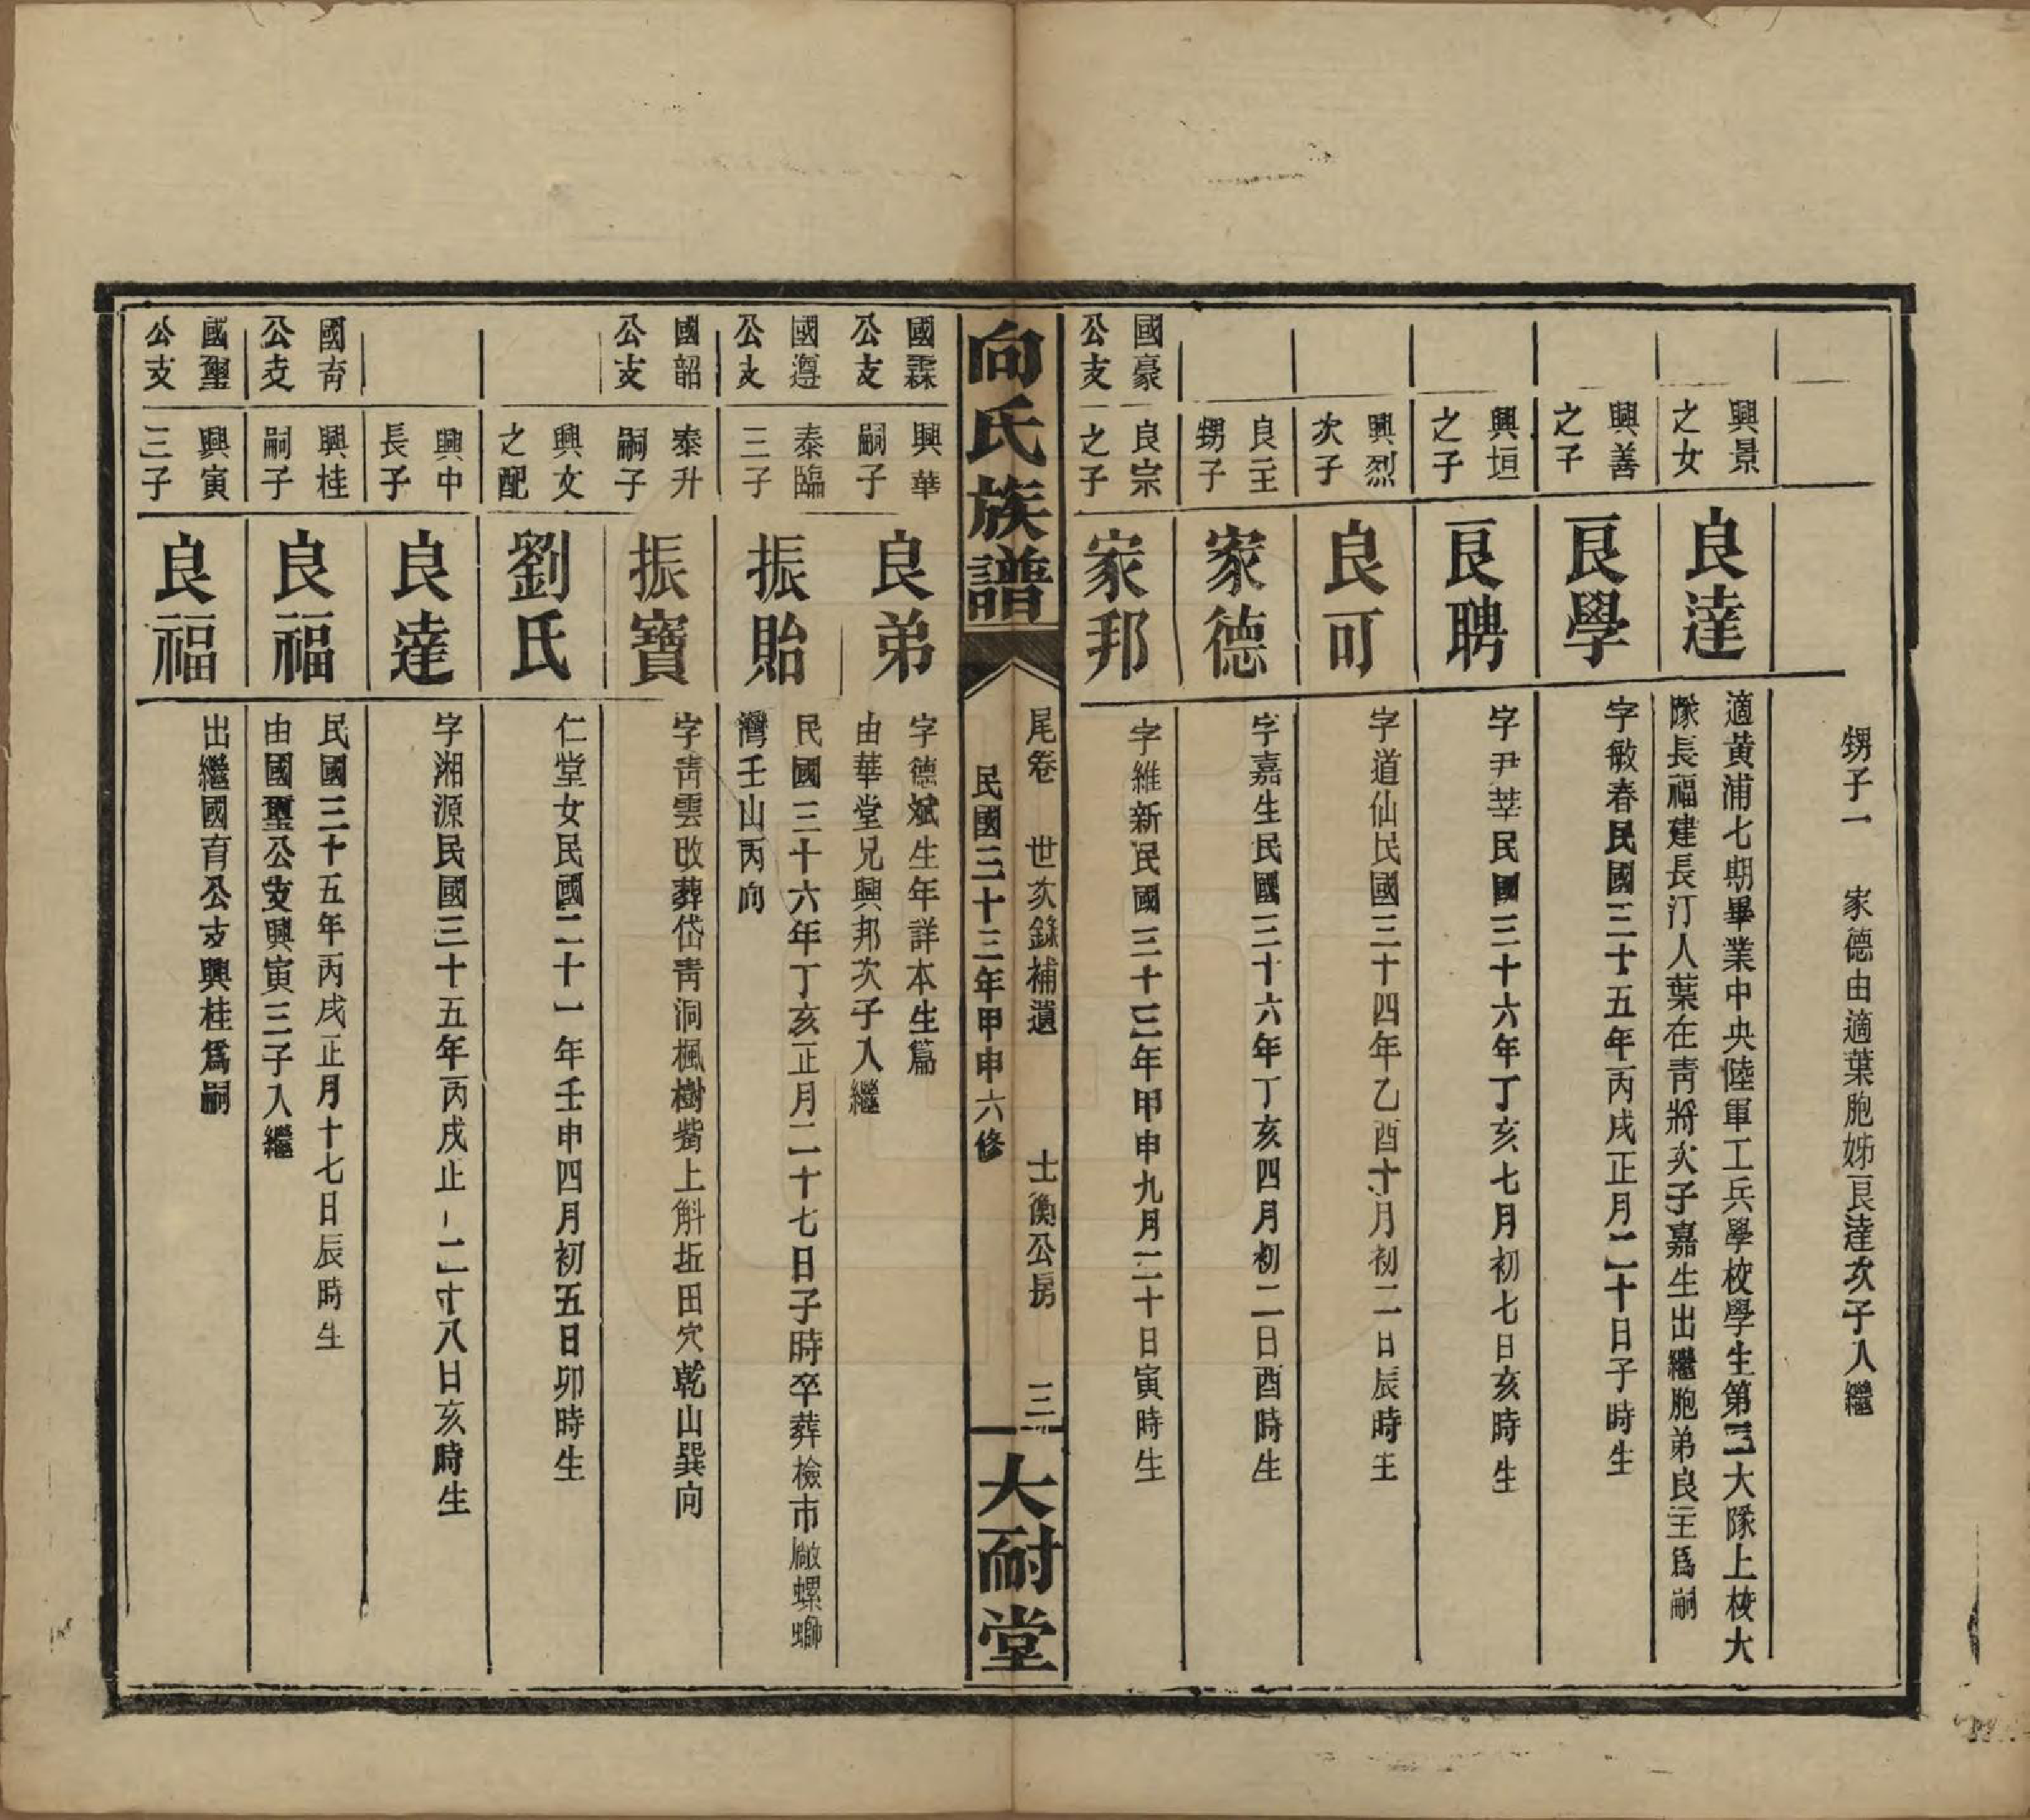 甥子一　家德由適葉胞姊良達次子入繼
興景
之女
良達
適黃浦七期畢業中央陸軍工兵學校學生第三大隊上校大
隊長福建長汀人葉在青將次子嘉生出繼胞弟良主爲嗣
興善
之子
良學
字敏春民國三十五年丙戌正月二十日子時生
興垣
之子
良聘
字尹莘民國三十六年丁亥七月初七日亥時生
興烈
次子
良可
字道仙民國三十四年乙酉十月初二日辰時生
良主
甥子
家德
字嘉生民國三十六年丁亥四月初二日酉時生
國豪
公支
良宗
之子
家邦
字維新民國三十三年甲申九月二十日寅時生
向氏族譜
尾卷　世次錄補遺　士衡公房　三
民國三十三年甲申六修
大耐堂
國霖
公支
興華
嗣子
良弟
字德斌生年詳本生篇
由華堂兄興邦次子入繼
國遵
公支
泰臨
三子
振貽
民國三十六年丁亥正月二十七日子時卒葬檢市廠螺螄
灣壬山丙向
國韶
公支
泰升
嗣子
振寶
字青雲改葬岱青洞楓樹觜上斛坵田穴乾山巽向
興文
之配
劉氏
仁堂女民國二十一年壬申四月初五日卯時生
興中
長子
良達
字湘源民國三十五年丙戌正二十八日亥時生
國育
公支
興桂
嗣子
良福
民國三十五年丙戌正月十七日辰時生
由國聖公支興寅三子入繼
國聖
公支
興寅
三子
良福
出繼國育公支興桂爲嗣